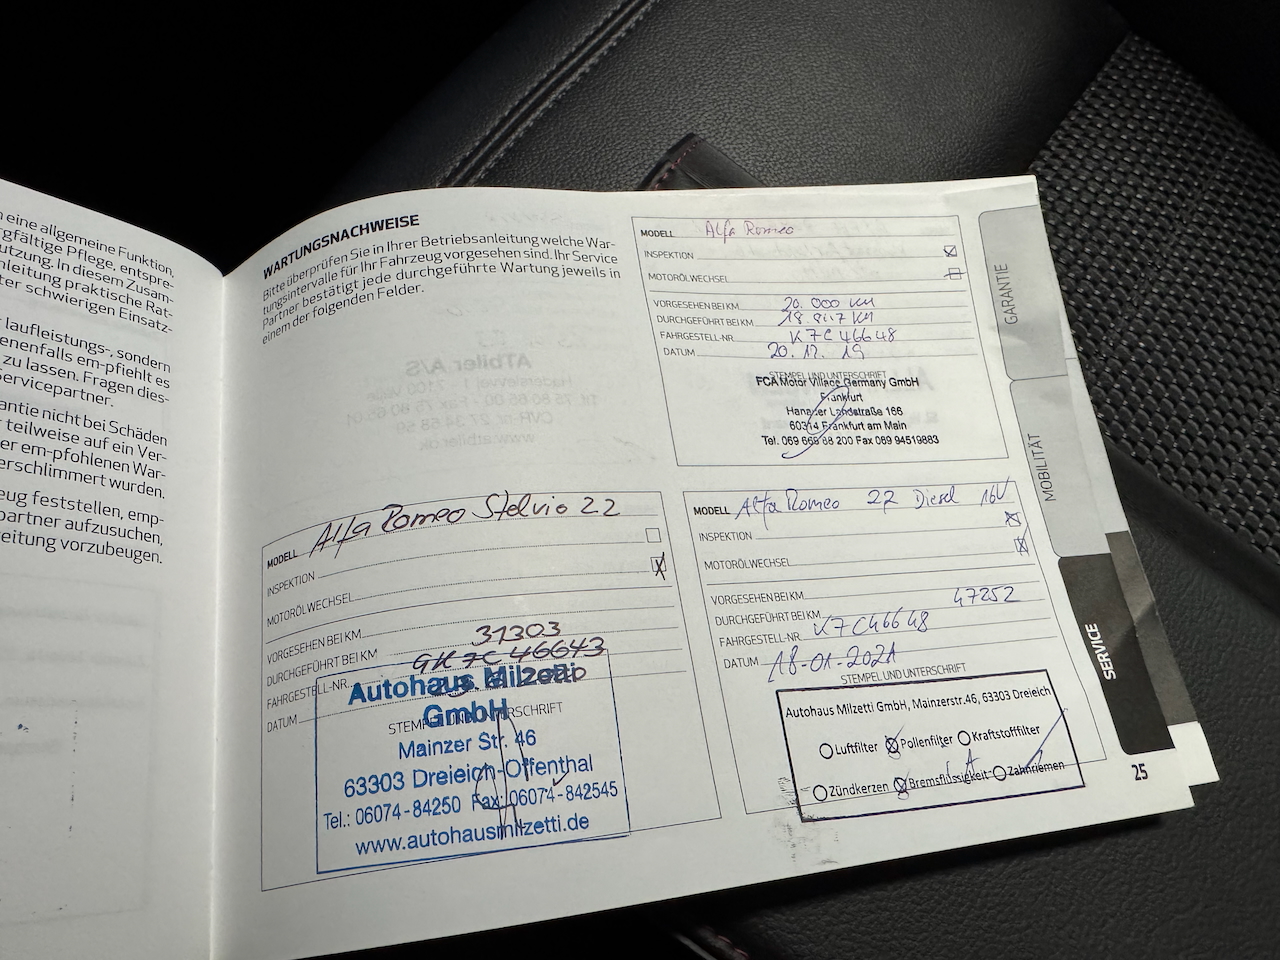 n eine allgemeine Funktion,
rgfältige Pflege, entspre-
utzung. In diesem Zusam-
nleitung praktische Rat-
ter schwierigen Einsatz-
r laufleistungs-, sondern
enenfalls em-pfiehlt es
zu lassen. Fragen dies-
Servicepartner.
antie nicht bei Schäden
r teilweise auf ein Ver-
er em-pfohlenen War-
erschlimmert wurden.
eug feststellen, emp-
partner aufzusuchen,
eitung vorzubeugen.
WARTUNGSNACHWEISE
Bitte überprüfen Sie in Ihrer Betriebsanleitung welche War-
tungsintervalle für Ihr Fahrzeug vorgesehen sind. Ihr Service
Partner bestätigt jede durchgeführte Wartung jeweils in
einem der folgenden Felder.
MODELL Alfa Romeo
INSPEKTION
MOTORÖLWECHSEL
VORGESEHEN BEI KM 20.000 KM
DURCHGEFÜHRT BEI KM 18.817 KM
FAHRGESTELL-NR. K7C46648
DATUM 20.12.19
STEMPEL UND UNTERSCHRIFT
FCA Motor Village Germany GmbH
Frankfurt
Hanauer Landstraße 166
60314 Frankfurt am Main
Tel. 069 668 68 200 Fax 069 94519883
MODELL Alfa Romeo Stelvio 22
INSPEKTION
MOTORÖLWECHSEL
VORGESEHEN BEI KM
DURCHGEFÜHRT BEI KM 31303
FAHRGESTELL-NR. GK7C46643
DATUM
STEMPEL UND UNTERSCHRIFT
Autohaus Milzetti
GmbH
Mainzer Str. 46
63303 Dreieich-Offenthal
Tel.: 06074-84250 Fax: 06074-842545
www.autohausmilzetti.de
MODELL Alfa Romeo 22 Diesel 16V
INSPEKTION
MOTORÖLWECHSEL
VORGESEHEN BEI KM
DURCHGEFÜHRT BEI KM 47252
FAHRGESTELL-NR. K7C46648
DATUM 18-01-2021
STEMPEL UND UNTERSCHRIFT
Autohaus Milzetti GmbH, Mainzerstr.46, 63303 Dreieich
Luftfilter Pollenfilter Kraftstofffilter
Zündkerzen Bremsflüssigkeit Zahnriemen
GARANTIE
MOBILITÄT
SERVICE
25